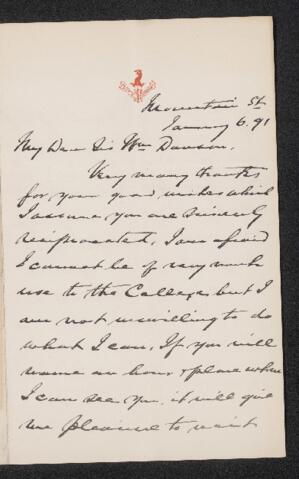 Mountain St
January 6. 91
My Dear Sir Wm Dawson,
Very many thanks
for your good wishes which
I assure you are sincerely
reciprocated, I am afraid
I cannot be of very much
use to the College, but I
am not unwilling to do
what I can. If you will
name an hour & place where
I can see you, it will give
me pleasure to wait